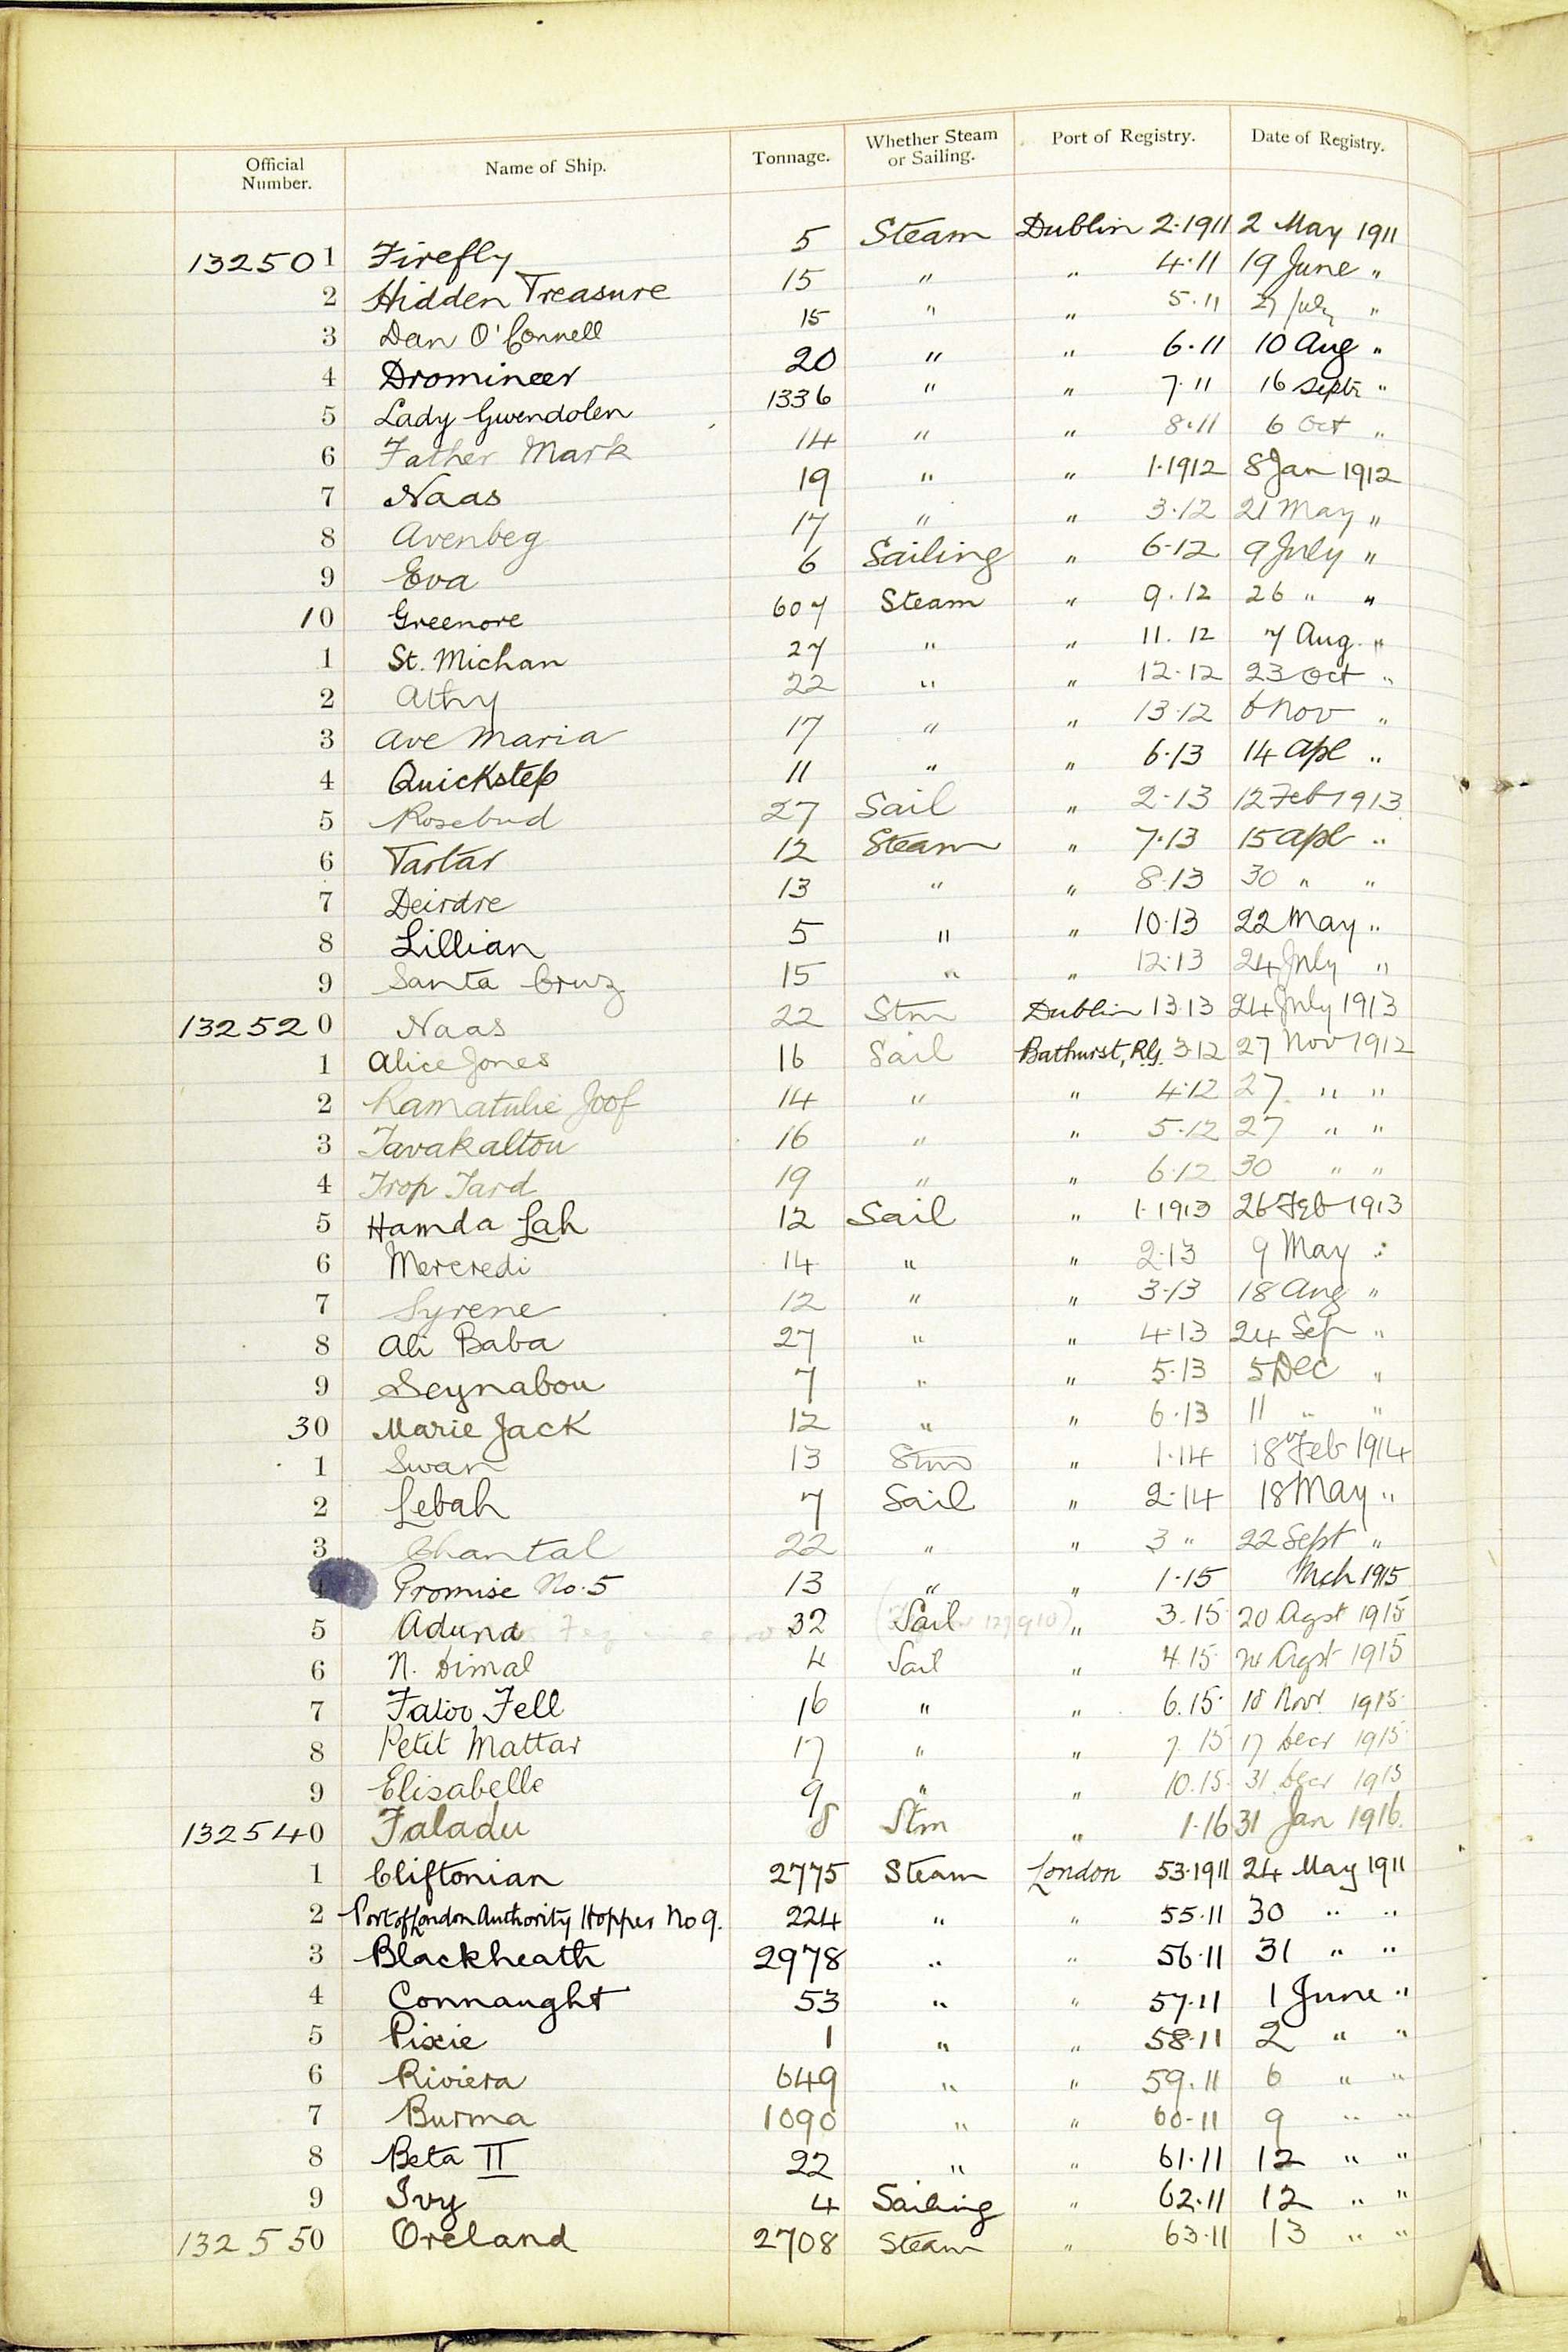 Official Number. Name of Ship. Tonnage. Whether Steam or Sailing. Port of Registry. Date of Registry.
132501 Firefly 5 Steam Dublin 2·1911 2 May 1911
2 Hidden Treasure 15 " " 4·11 19 June "
3 Dan O'Connell 15 " " 5·11 27 July "
4 Dromineer 20 " " 6·11 10 Aug "
5 Lady Gwendolen 1336 " " 7·11 16 Septr "
6 Father Mark 14 " " 8·11 6 Oct "
7 Naas 19 " " 1·1912 8 Jan 1912
8 Avenbeg 17 " " 3·12 21 May "
9 Eva 6 Sailing " 6·12 9 July "
10 Greenore 607 Steam " 9·12 26 " "
1 St. Michan 27 " " 11·12 7 Aug. "
2 Athy 22 " " 12·12 23 Oct "
3 Ave Maria 17 " " 13·12 6 Nov "
4 Quickstep 11 " " 6·13 14 Apl "
5 Rosebud 27 Sail " 2·13 12 Feb 1913
6 Tartar 12 Steam " 7·13 15 Apl "
7 Deirdre 13 " " 8·13 30 " "
8 Lillian 5 " " 10·13 22 May "
9 Santa Cruz 15 " " 12·13 24 July "
132520 Naas 22 Stm Dublin 13·13 24 July 1913
1 Alice Jones 16 Sail Bathurst, R.G. 3·12 27 Nov 1912
2 Ramatulie Joof 14 " " 4·12 27 " "
3 Tavakaltou 16 " " 5·12 27 " "
4 Trop Tard 19 " " 6·12 30 " "
5 Hamda Lah 12 Sail " 1·1913 26 Feb 1913
6 Mercredi 14 " " 2·13 9 May "
7 Syrene 12 " " 3·13 18 Aug "
8 Ali Baba 27 " " 4·13 24 Sep "
9 Seynabou 7 " " 5·13 5 Dec "
30 Marie Jack 12 " " 6·13 11 " "
1 Swan 13 Stm " 1·14 18 Feb 1914
2 Lebah 7 Sail " 2·14 18 May "
3 Chantal 22 " " 3 " 22 Sept "
Promise No. 5 13 " " 1·15 Mch 1915
5 Aduna 32 Sail " 3.15 20 Agst 1915
6 N. Dimal 4 Sail " 4.15 Agst 1915
7 Fell 16 " " 6.15 18 Novr 1915
8 Petit Mattar 17 " " 7.15 17 Decr 1915
9 Elisabelle 9 " " 10.15 31 Decr 1915
132540 Faladu 8 Stm " 1·16 31 Jan 1916.
1 Cliftonian 2775 Steam London 53·1911 24 May 1911
2 Port of London Authority Hopper No 9. 224 " " 55·11 30 " "
3 Blackheath 2978 " " 56·11 31 " "
4 Connaught 53 " " 57·11 1 June "
5 Pixie 1 " " 58·11 2 " "
6 Riviera 649 " " 59·11 6 " "
7 Burma 1090 " " 60·11 9 " "
8 Beta II 22 " " 61·11 12 " "
9 Ivy 4 Sailing " 62·11 12 " "
132550 Oreland 2708 Steam " 63·11 13 " "